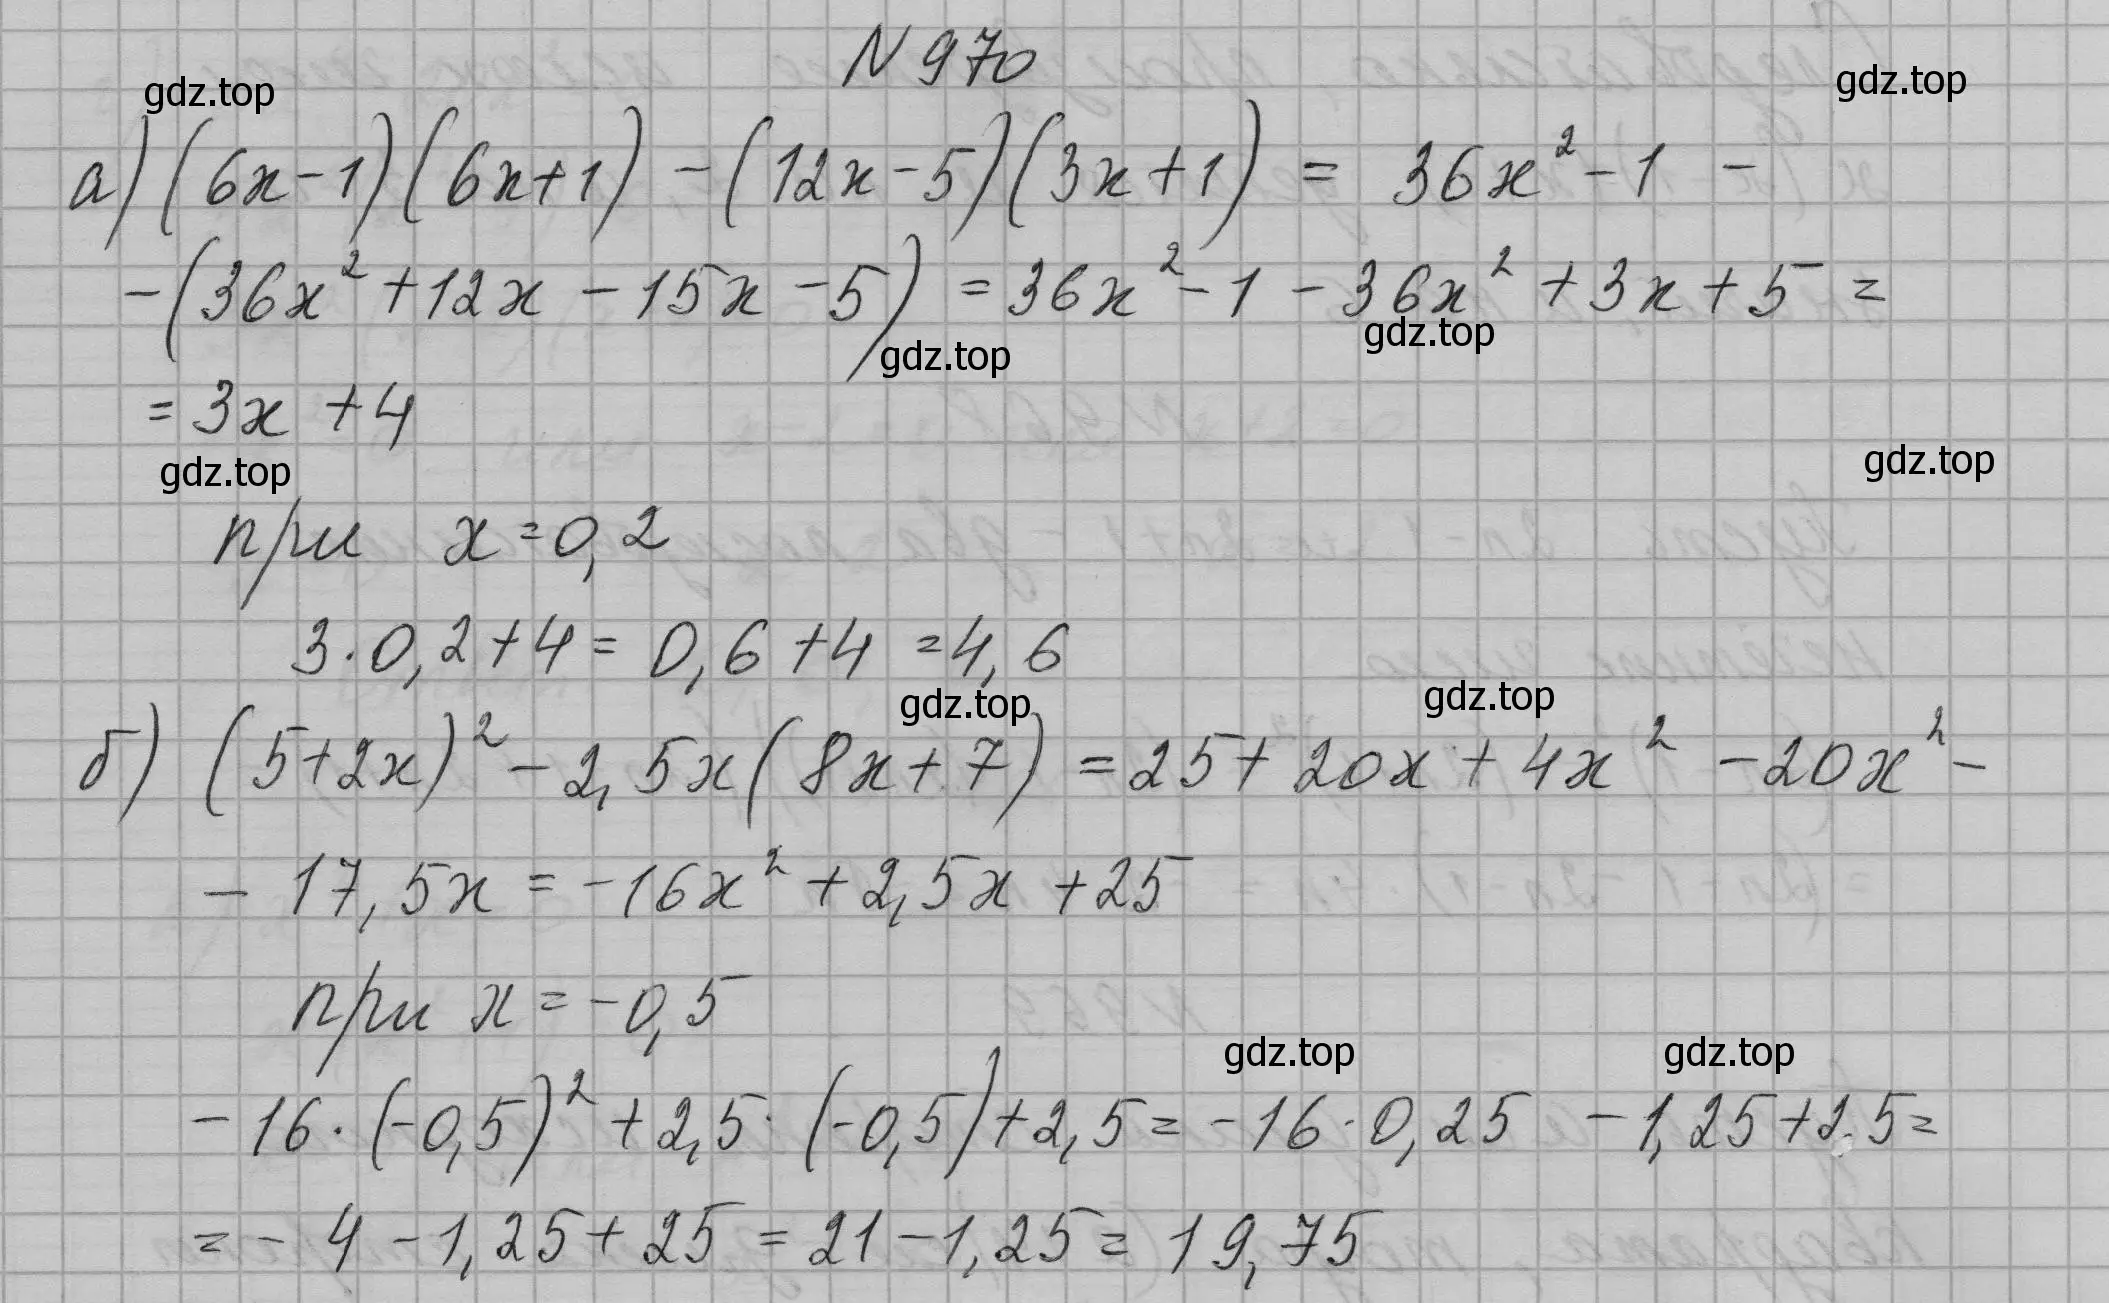 N 970
gdz.top
gdz.top
а) (6x-1)(6x+1) - (12x-5)(3x+1) = 36x² - 1 -
-(36x² + 12x - 15x - 5) = 36x² - 1 - 36x² + 3x + 5 =
gdz.top
gdz.top
= 3x + 4
gdz.top
gdz.top
при x = 0,2
3·0,2 + 4 = 0,6 + 4 = 4,6
gdz.top
gdz.top
б) (5+2x)² - 2,5x(8x+7) = 25 + 20x + 4x² - 20x² -
- 17,5x = -16x² + 2,5x + 25
при x = -0,5
gdz.top
gdz.top
-16·(-0,5)² + 2,5·(-0,5) + 2,5 = -16·0,25 - 1,25 + 2,5 =
= - 4 - 1,25 + 25 = 21 - 1,25 = 19,75